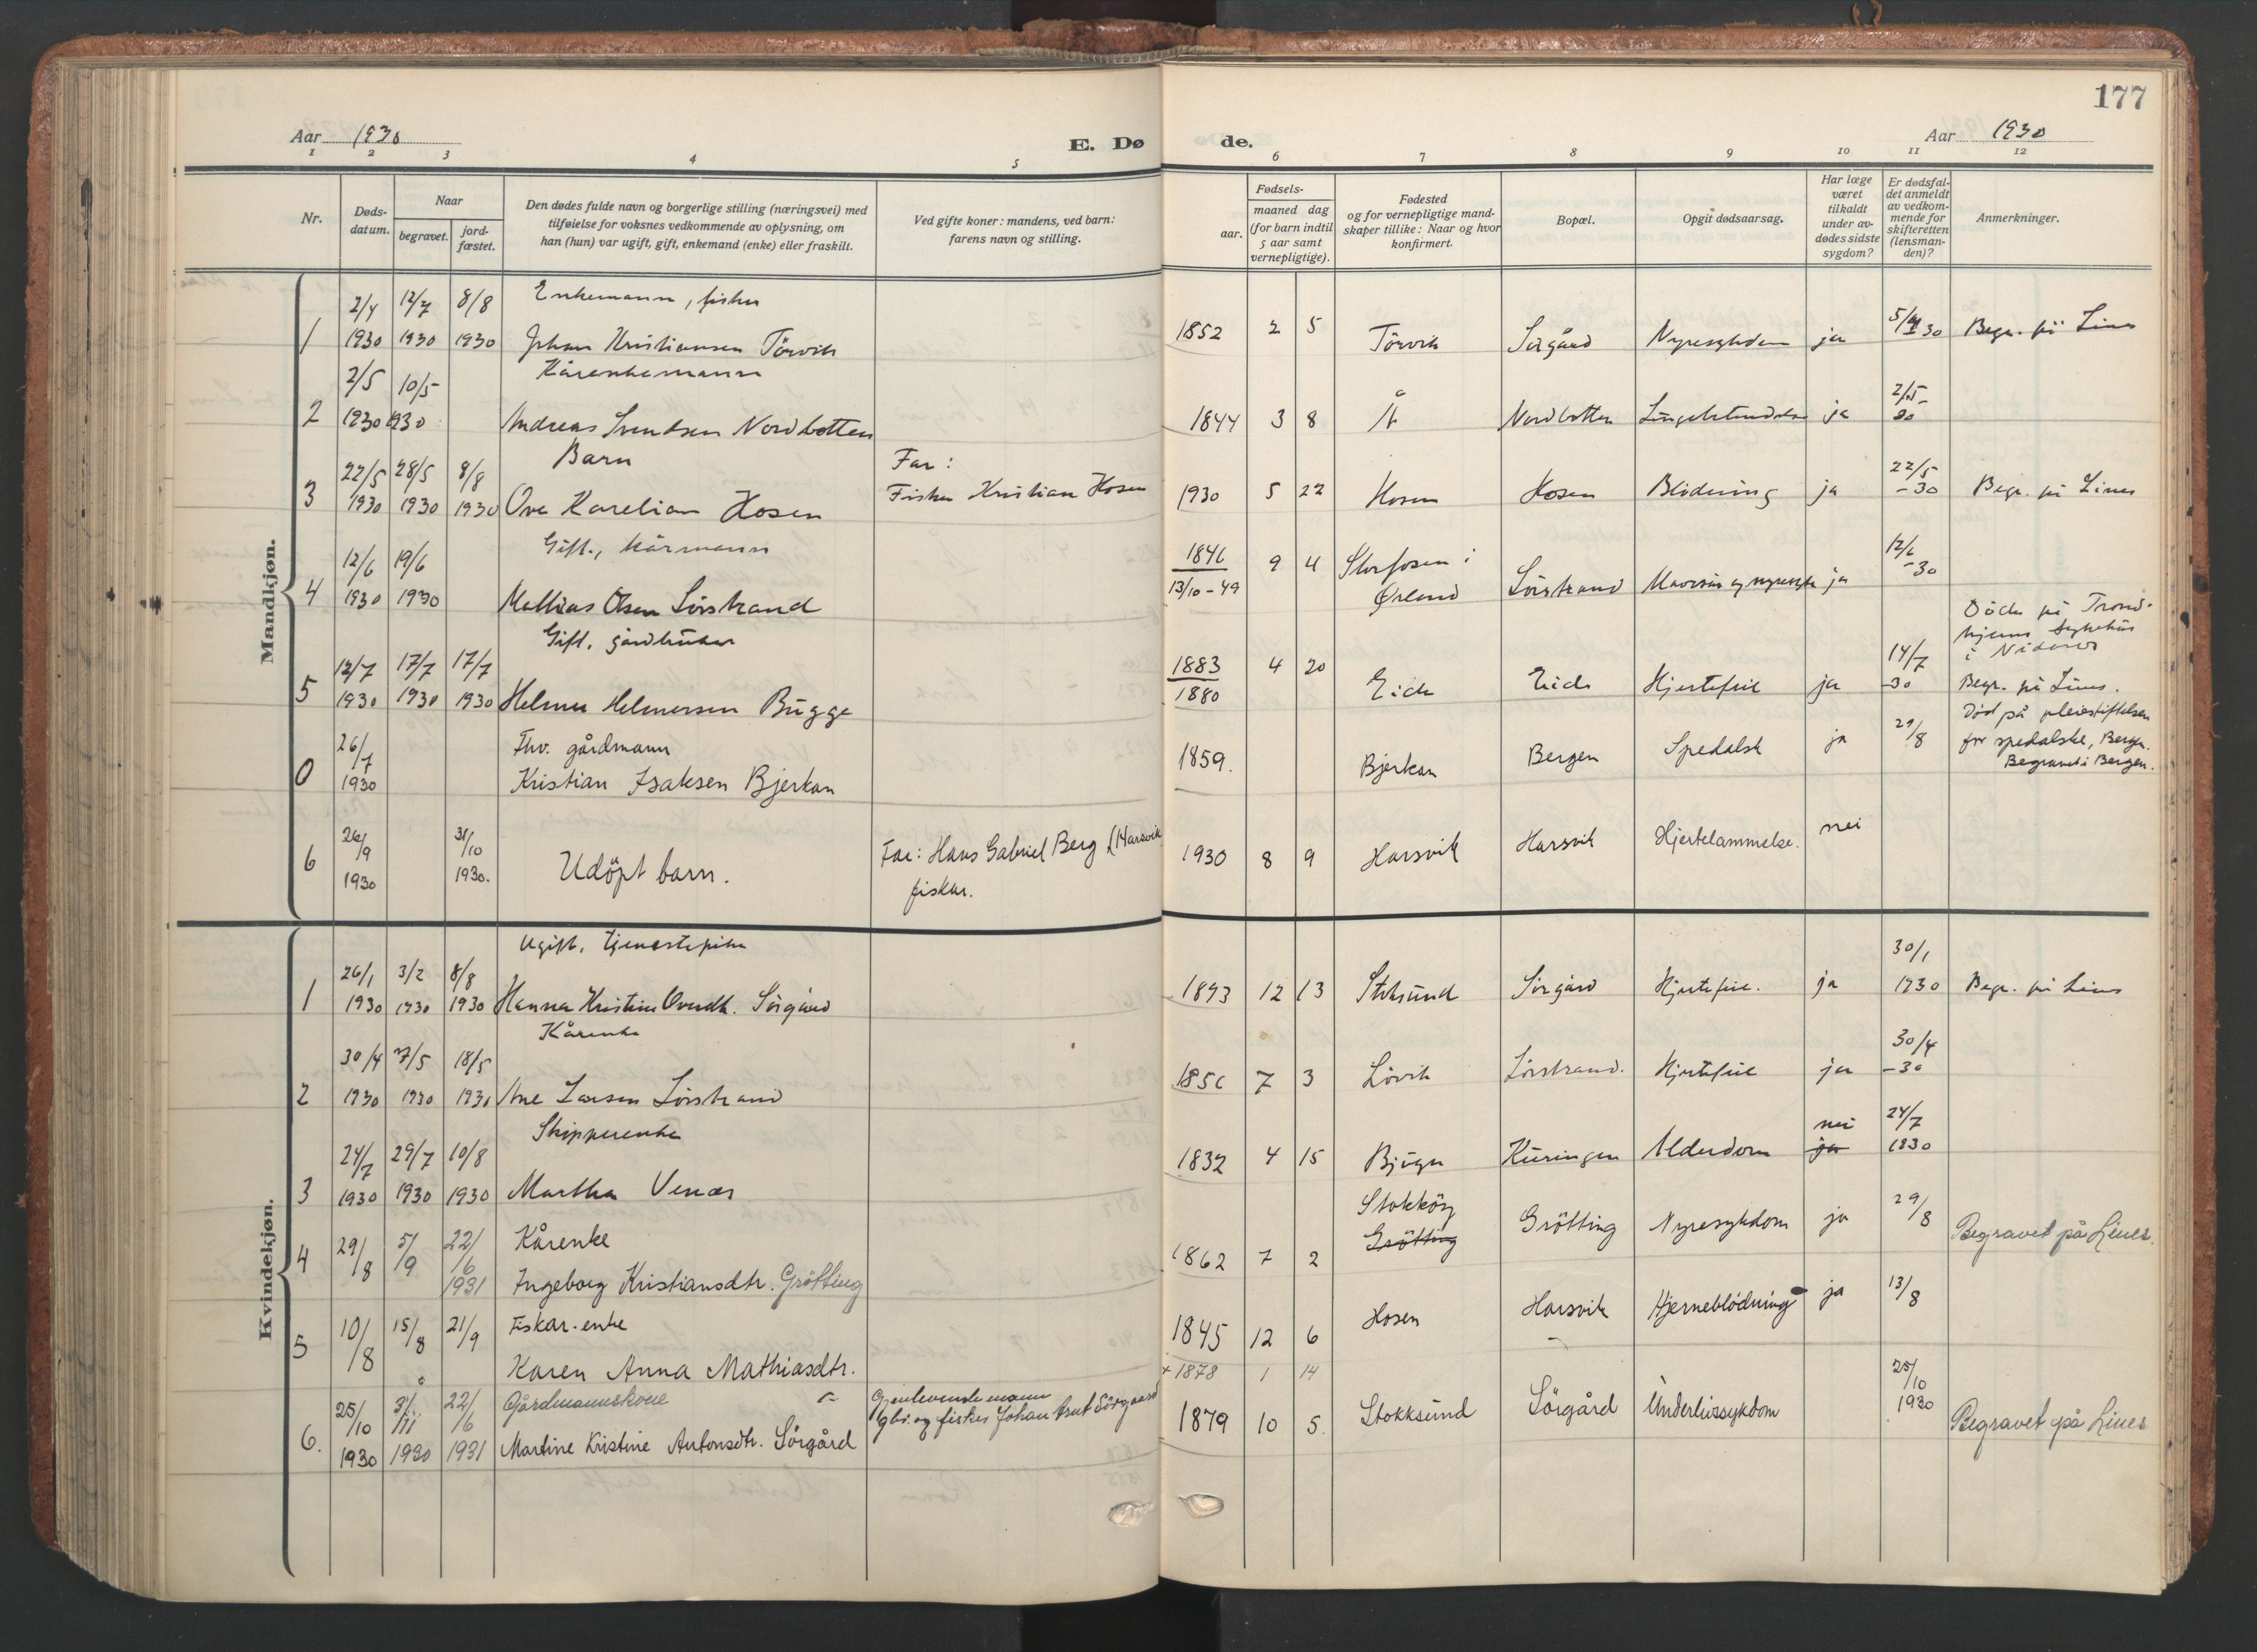 177
Aar 1930
E. Dø
de.
Aar 1930
1 2 3 4 5 6 7 8 9 10 11 12
Nr.
Døds-
datum.
Naar
begravet.
jord-
fæstet.
Den dødes fulde navn og borgerlige stilling (næringsvei) med
tilføielse for voksnes vedkommende av oplysning, om
han (hun) var ugift, gift, enkemand (enke) eller fraskilt.
Ved gifte koner: mandens, ved barn:
farens navn og stilling.
Fødsels-
aar.
maaned dag
(for barn indtil
5 aar samt
vernepligtige).
Fødested
og for vernepligtige mand-
skaper tillike: Naar og hvor
konfirmert.
Bopæl.
Opgit dødsaarsag.
Har læge
været
tilkaldt
under av-
dødes sidste
sygdom?
Er dødsfal-
det anmeldt
av vedkom-
mende for
skifteretten
(lensman-
den)?
Anmerkninger.
Mandkjøn.
2/4 12/7 8/8 Enkemann, fisker
1 1930 1930 1930 Johan Kristiansen Törvik 1852 2 5 Törvik Sörgård Nyresykdom ja 5/4 30 Begr. på Lines
2/5 10/5 Kårenkemann
2 1930 1930 Andreas Svendsen Nordbotten 1844 3 8 Å Nordbotten ja 2/5- 30
22/5 28/5 8/8 Barn Far:
3 1930 1930 1930 Ove Karelian Hosen Fisker Kristian Hosen 1930 5 22 Hosen Hosen Blödning ja 22/5 -30 Begr. på Lines
12/6 19/6 Gift, kårmann
4 1930 1930 Mathias Olsen Sörstrand 1846 13/10-49 9 4 Storfosen i Ørland Sörstrand ja 12/6 -30
12/7 17/7 17/7 Gift, gårdbruker
5 1930 1930 1930 Helmer Helmersen Bugge 1883 1880 4 20 Eide Eide Hjertefeil ja 14/7 -30
Döde på Trond-
hjems sykehus
i Nidaros
Begr. på Lines.
26/7 Fhv. gårdmann
0 1930 Kristian Isaksen Bjerkan 1859. Bjerkan Bergen Spedalsk ja 29/8
Död på pleiestiftelsen
for spedalske, Bergen.
Begravet i Bergen.
6 26/9 1930 31/10 1930. Udöpt barn. Far: Hans Gabriel Berg (Harsvik
fiskar.
1930 8 9 Harsvik Harsvik Hjertelammelse. nei
Kvindekjøn.
26/1 3/2 8/8 Ugift, tjenestepike
1 1930 1930 1930 Hanna Kristine Ovedtr. Sörgård 1893 12 13 Stoksund Sörgård Hjertefeil. ja 30/1 1930 Begr. på Lines
30/4 7/5 18/5 Kårenke
2 1930 1930 1930 Ane Larsen Sörstrand 1856 7 3 Lövik Sörstrand. Hjertefeil ja 30/4 -30
24/7 29/7 10/8 Skipperenke
3 1930 1930 1930 Martha Venæs 1832 4 15 Bjugn Kuringen Alderdom nei ja 24/7 1930
4 29/8 5/9 22/6 1931 Kårenke
Ingeborg Kristiansdtr. Grötting 1862 7 2 Stokköy Grötting Grötting Nyresykdom ja 29/8 Begravet på Lines.
5 10/8 15/8 21/9 Fiskar-enke
Karen Anna Mathiasdtr. 1845 12 6 Hosen Harsvik Hjerneblödning ja 13/8
+ 1878 1 14
6. 25/10 1930 3/11 1930 22/6 1931 Gårdmannskone
Martine Kristine Antonsdtr. Sörgård
Gjenlevende mann
gbr. og fisker Johan Sörgaard
1879 10 5. Stokksund Sörgård Underlivssykdom 25/10 1930 Begravet på Lines